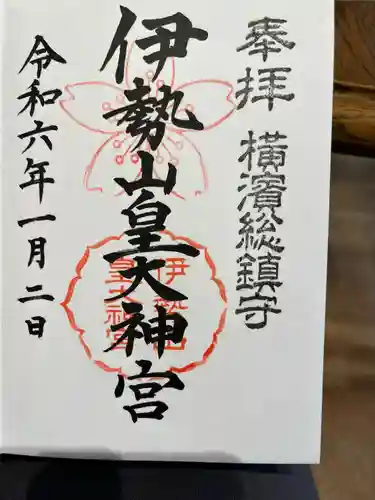 奉拝 横濱総鎮守
伊勢山皇大神宮
伊勢山
皇大神宮
令和六年一月二日